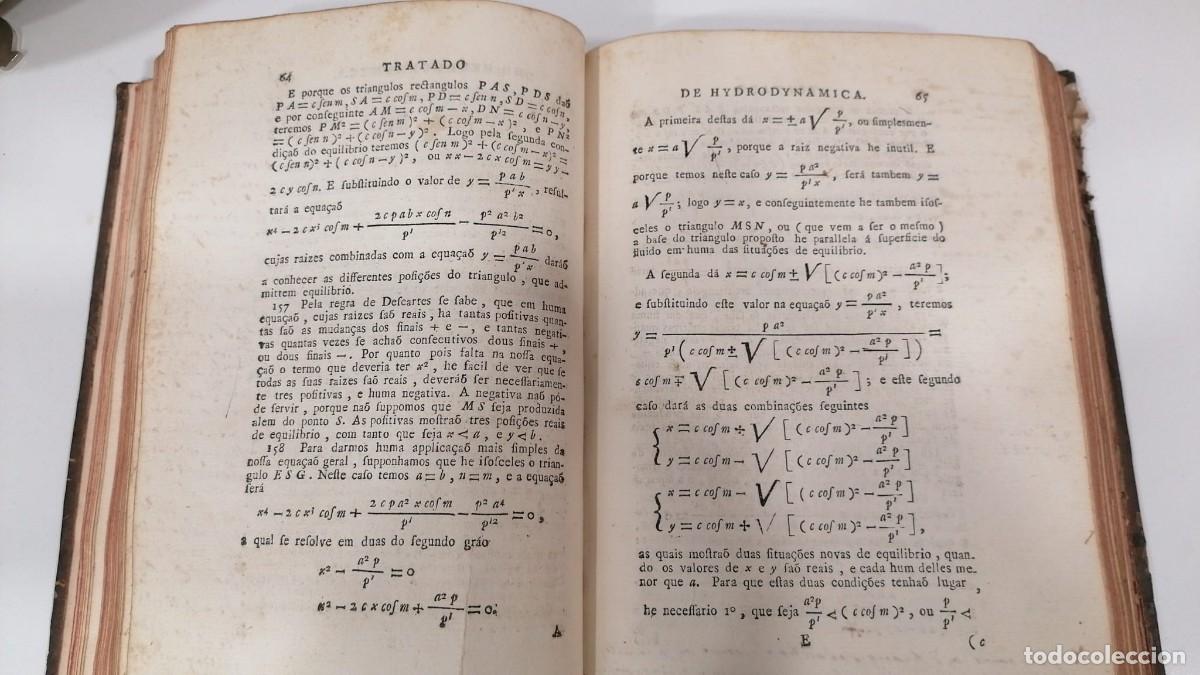 64
TRATADO
E porque os triangulos rectangulos PAS, PDS daõ
PA = c ſen m, SA = c coſ m, PD = c ſen n, SD = c coſ n,
e por conſeguinte AM = c coſ m − x, DN = c coſ n − y,
teremos PM² = (c ſen m)² + (c coſ m − x)², e PN²
= (c ſen n)² + (c coſ n − y)². Logo pela ſegunda con-
diçaõ do equilibrio teremos (c ſen m)² + (c coſ m − x)² =
(c ſen n)² + (c coſ n − y)², ou xx − 2 c x coſ m = yy −
2 c y coſ n. E ſubſtituindo o valor de y = p a b / p' x, reſul-
tará a equaçaõ
x⁴ − 2 c x³ coſ m + 2 c p a b x coſ n / p' − p² a² b² / p'² = 0,
cujas raizes combinadas com a equaçaõ y = p a b / p' x daráõ
a conhecer as differentes poſições do triangulo, que ad-
mittem equilibrio.
157 Pela regra de Deſcartes ſe ſabe, que em huma
equaçaõ, cujas raizes ſaõ reais, ha tantas poſitivas quan-
tas ſaõ as mudanças dos ſinais + e −, e tantas negati-
vas quantas vezes ſe achaõ conſecutivos dous ſinais +,
ou dous ſinais −. Por quanto pois falta na noſſa equa-
çaõ o termo que deveria ter x², he facil de ver que ſe
todas as ſuas raizes ſaõ reais, deveráõ ſer neceſſariamen-
te tres poſitivas, e huma negativa. A negativa naõ pó-
de ſervir, porque naõ ſuppomos que MS ſeja produzida
alem do ponto S. As poſitivas moſtraõ tres poſições reais
de equilibrio, com tanto que ſeja x < a, e y < b.
158 Para darmos huma applicaçaõ mais ſimples da
noſſa equaçaõ geral, ſupponhamos que he iſoſceles o trian-
gulo ESG. Neſte caſo temos a = b, n = m, e a equaçaõ
ſerá
x⁴ − 2 c x³ coſ m + 2 c p a² x coſ m / p' − p² a⁴ / p'² = 0,
a qual ſe reſolve em duas do ſegundo gráo
x² − a² p / p' = 0
x² − 2 c x coſ m + a² p / p' = 0.
A
DE HYDRODYNAMICA.
65
A primeira deſtas dá x = ± a √ p / p', ou ſimpleſmen-
te x = a √ p / p', porque a raiz negativa he inutil. E
porque temos neſte caſo y = p a² / p' x, ſerá tambem y =
a √ p / p'; logo y = x, e conſeguintemente he tambem iſoſ-
celes o triangulo MSN, ou (que vem a ſer o meſmo)
a baſe do triangulo propoſto he parallela á ſuperficie do
fluido em huma das ſituações de equilibrio.
A ſegunda dá x = c coſ m ± √ [ (c coſ m)² − a² p / p' ];
e ſubſtituindo eſte valor na equaçaõ y = p a² / p' x, teremos
y = p a² / p' ( c coſ m ± √ [ (c coſ m)² − a² p / p' ] ) =
c coſ m ∓ √ [ (c coſ m)² − a² p / p' ]; e eſte ſegundo
caſo dará as duas combinações ſeguintes
{ x = c coſ m + √ [ (c coſ m)² − a² p / p' ]
y = c coſ m − √ [ (c coſ m)² − a² p / p' ]
{ x = c coſ m − √ [ (c coſ m)² − a² p / p' ]
y = c coſ m + √ [ (c coſ m)² − a² p / p' ],
as quais moſtraõ duas ſituações novas de equilibrio, quan-
do os valores de x e y ſaõ reais, e cada hum delles me-
nor que a. Para que eſtas duas condições tenhaõ lugar,
he neceſſario 1º, que ſeja a² p / p' < (c coſ m)², ou p / p' <
E
(c
todocoleccion